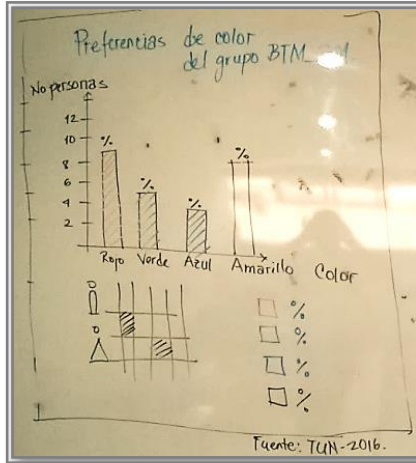 Preferencias de color
del grupo BTM
No personas
12
10
8
6
4
2
% % % %
Rojo Verde Azul Amarillo Color
%
%
%
%
Fuente: TUN-2016.